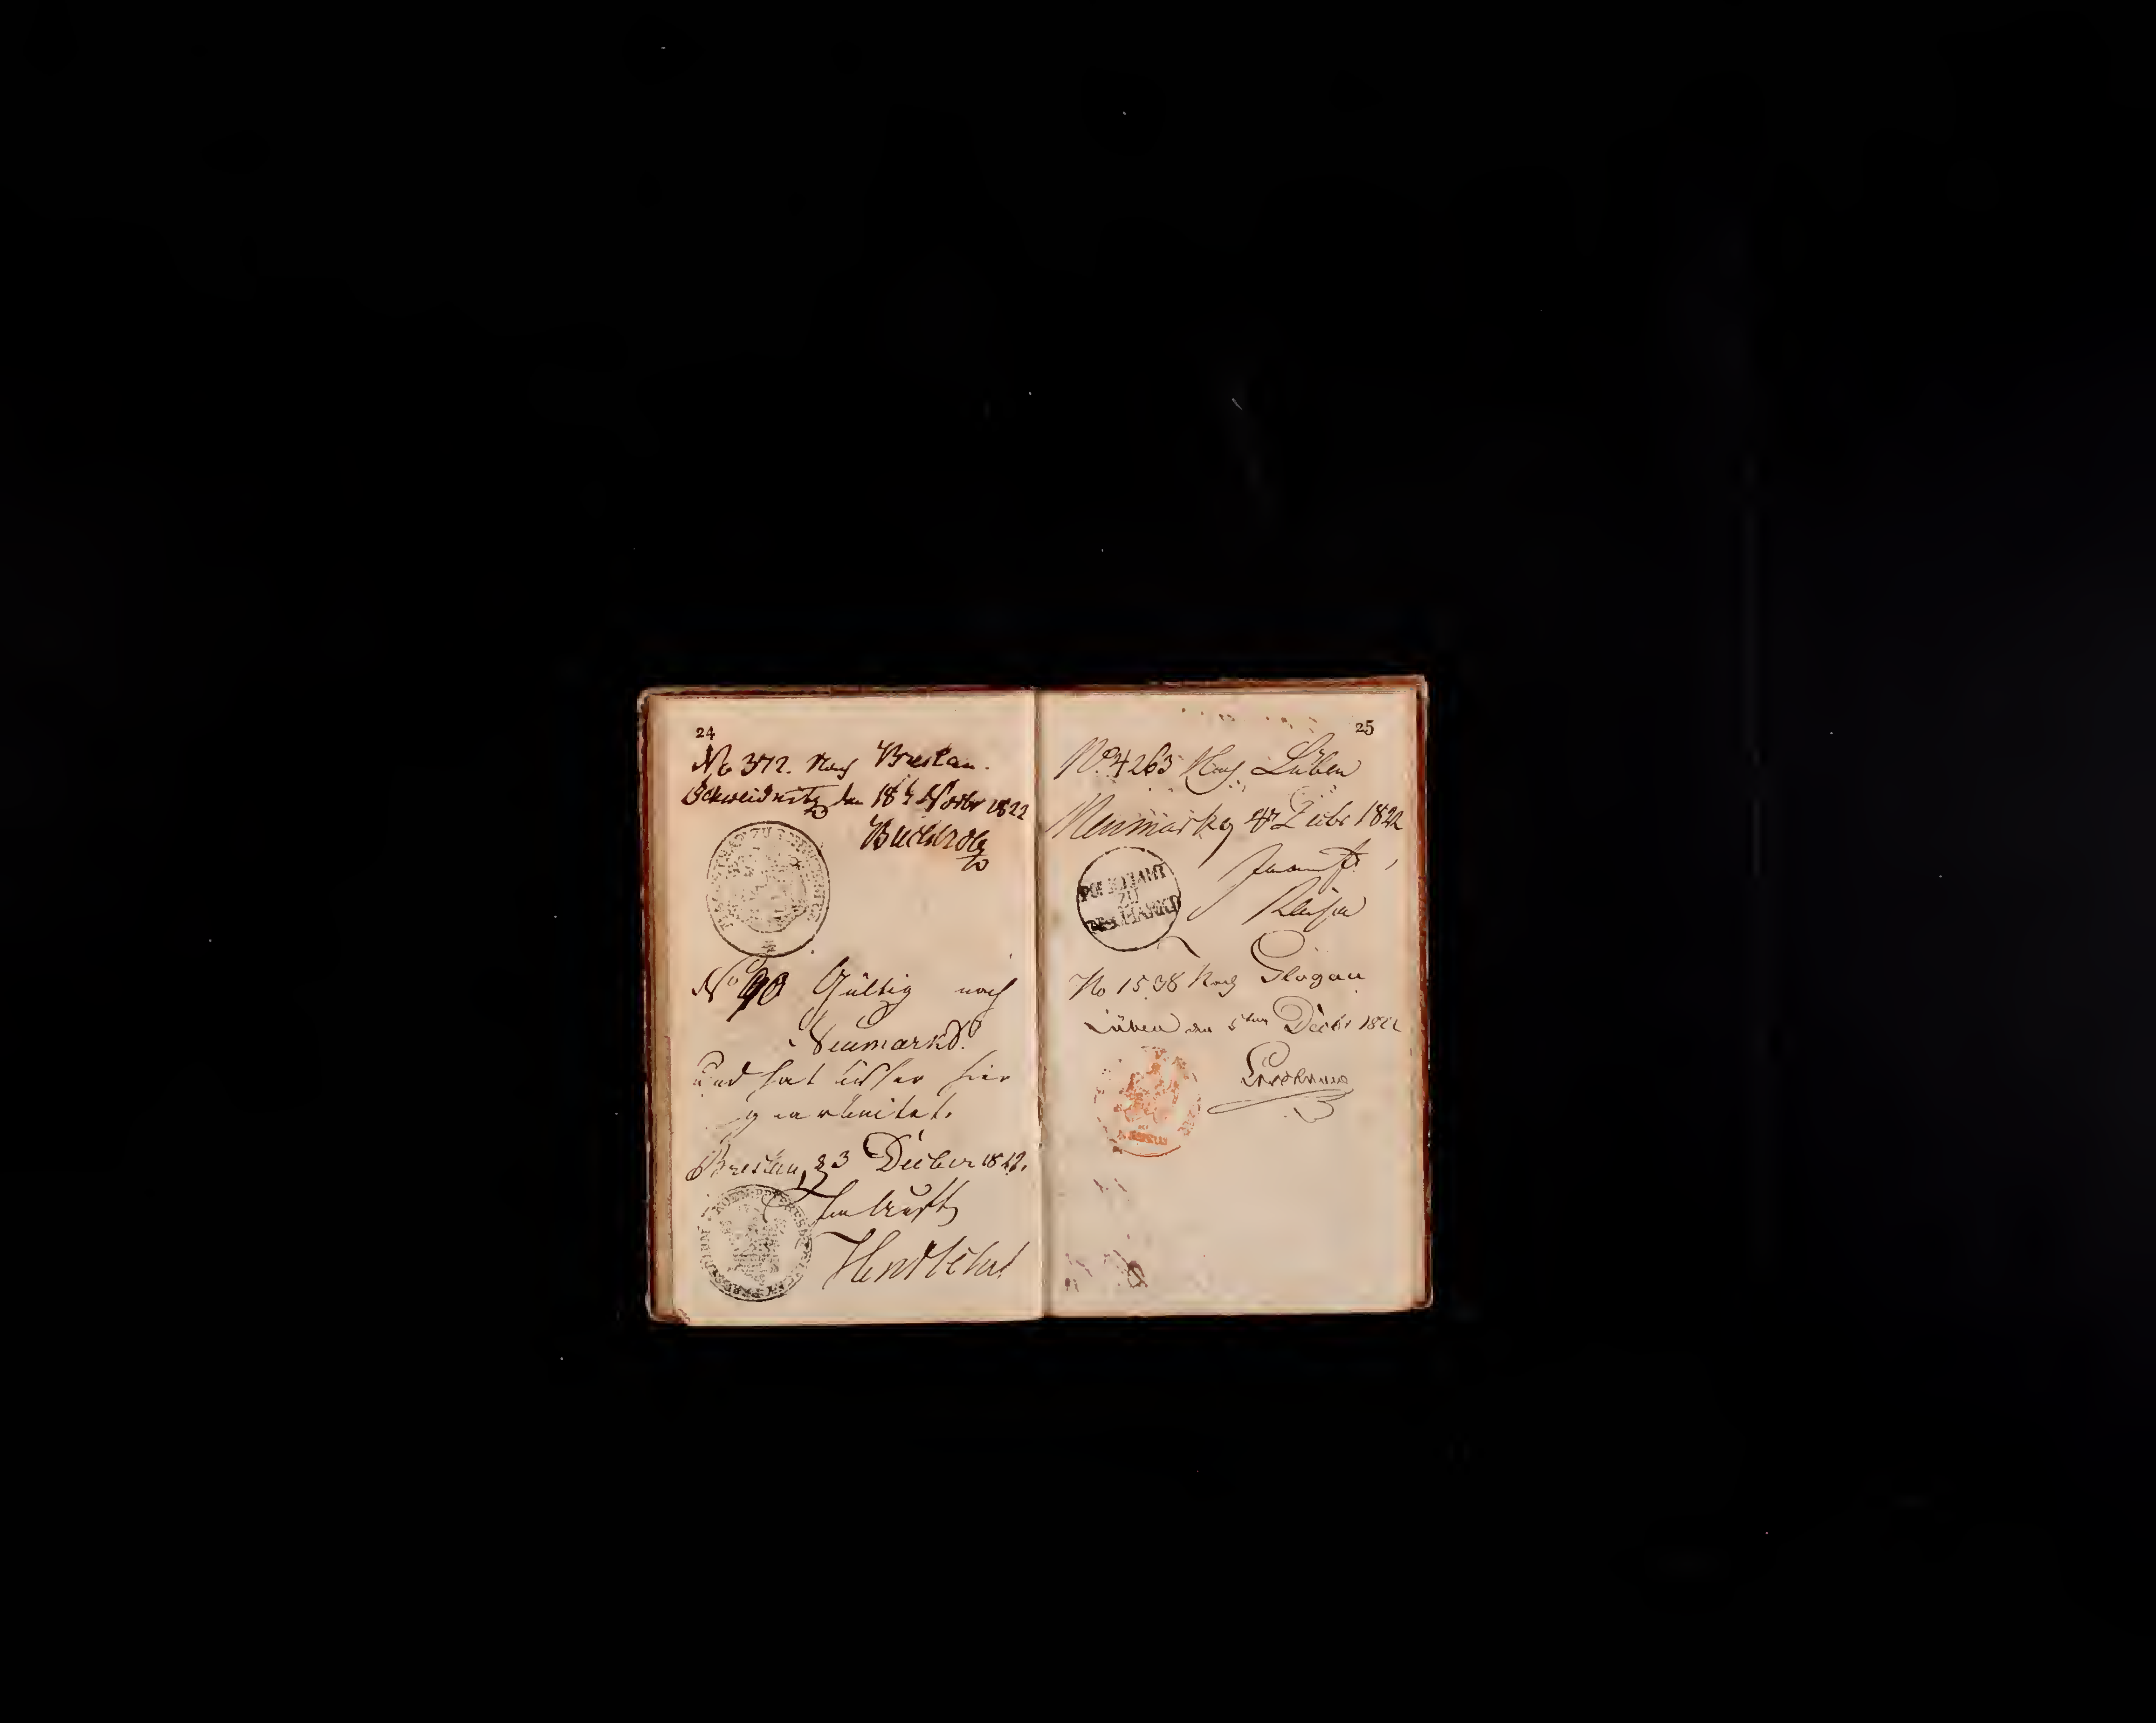 24
No 372. Nach Breslau.
Schweidnitz den 18t Novbr 1822
Buchholtz
No 90 Gültig nach
Neumarkt.
und hat bisher hier
gearbeitet.
Breslau, d 3 Decber 1822.
25
No 4263 Nach Lüben
Neumarkt 4t Decbr 1822
POLIZEIAMT
ZU
NEUMARKT
No 1538 Nach Glogau
Lüben den 5ten Decbr 1822